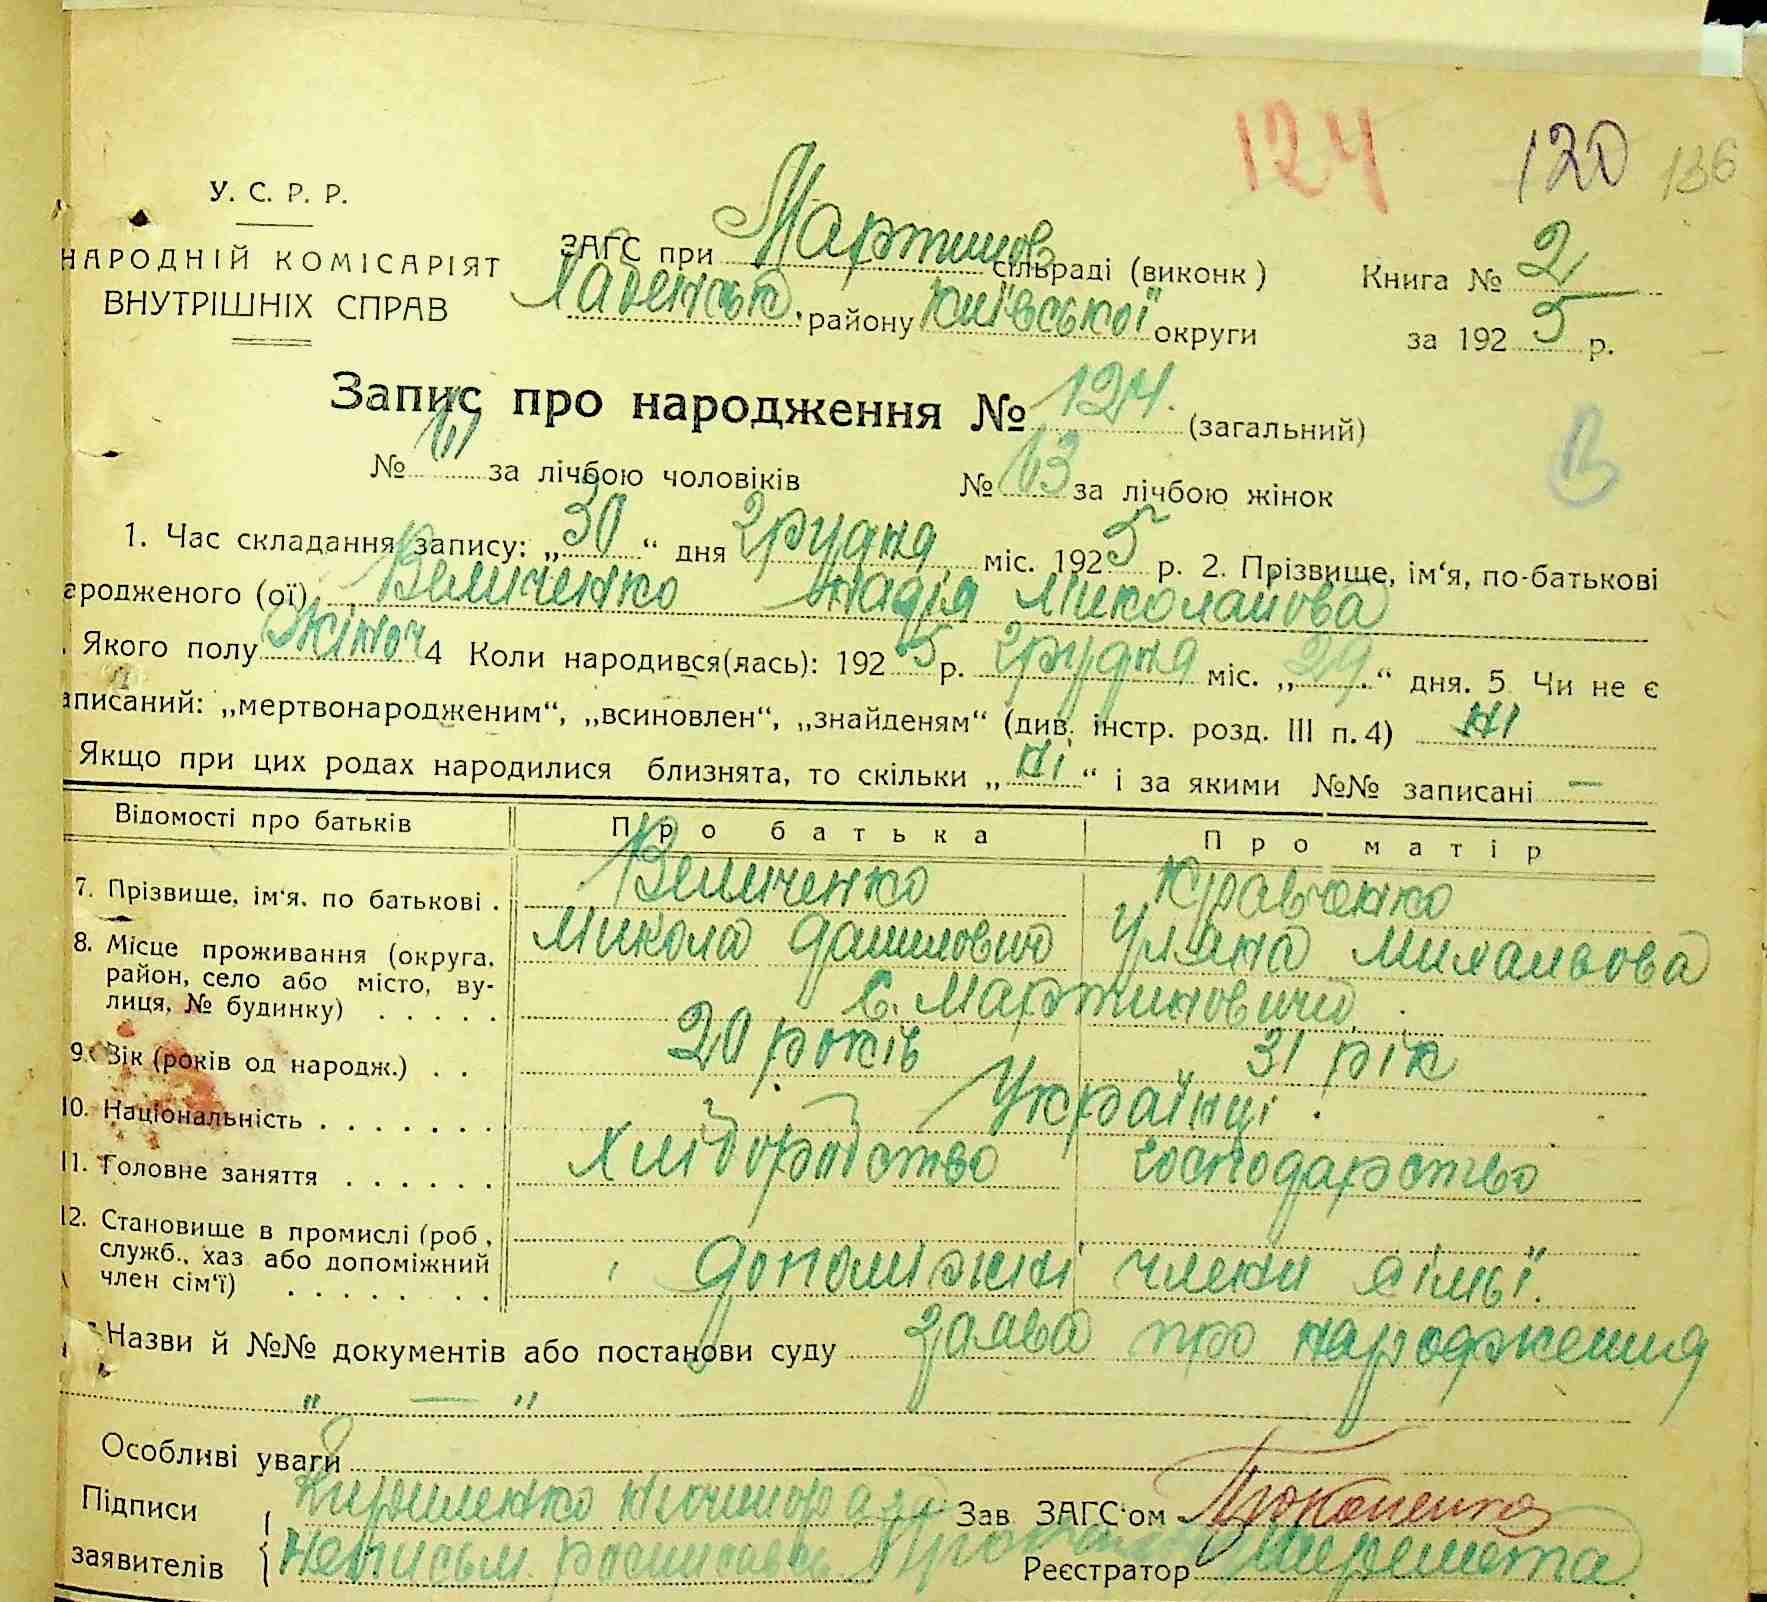 124 120 136
У. С. Р. Р.
НАРОДНІЙ КОМІСАРІЯТ
ВНУТРІШНІХ СПРАВ
ЗАГС при Мартинов сільраді (виконк)
района Київської округи
Книга № 2
за 1925 р.
Запис про народження № 124. (загальний)
№ за лічбою чоловіків № 63 за лічбою жінок
В
1. Час складання запису: „30“ дня грудня міс. 1925 р. 2. Прізвище, ім‘я, по-батькові
ародженого (ої) Величенко Надія Миколайова
. Якого полу жіноч 4 Коли народився(лась): 1925 р. грудня міс. „29“ дня. 5 Чи не є
аписаний: „мертвонародженим“, „всиновлен“, „знайденям“ (див. інстр. розд. III п. 4) ні
Якщо при цих родах народилися близнята, то скільки „ні“ і за якими №№ записані —
Відомості про батьків Про батька Про матір
7. Прізвище, ім‘я, по батькові . Величенко Кравченко
Микола Данилович Уляна Михайлова
8. Місце проживання (округа, район, село або місто, ву-
лиця, № будинку) . . . . . С. Мартиновичі
9. Вік (років од народж.) . . 20 років 31 рік
10. Національність . . . . . . . Українці
11. Головне заняття . . . . . . Хліборобство господарство
12. Становище в промислі (роб.,
служб., хаз або допоміжний
член сім‘ї) . . . . . . . . допоміжні члени сімьї.
Назви й №№ документів або постанови суду заява про народження
„ — “
Особливі уваги
Підписи Зав ЗАГС‘ом
заявителів Неписьм. росписавсь Реєстратор Шеремета